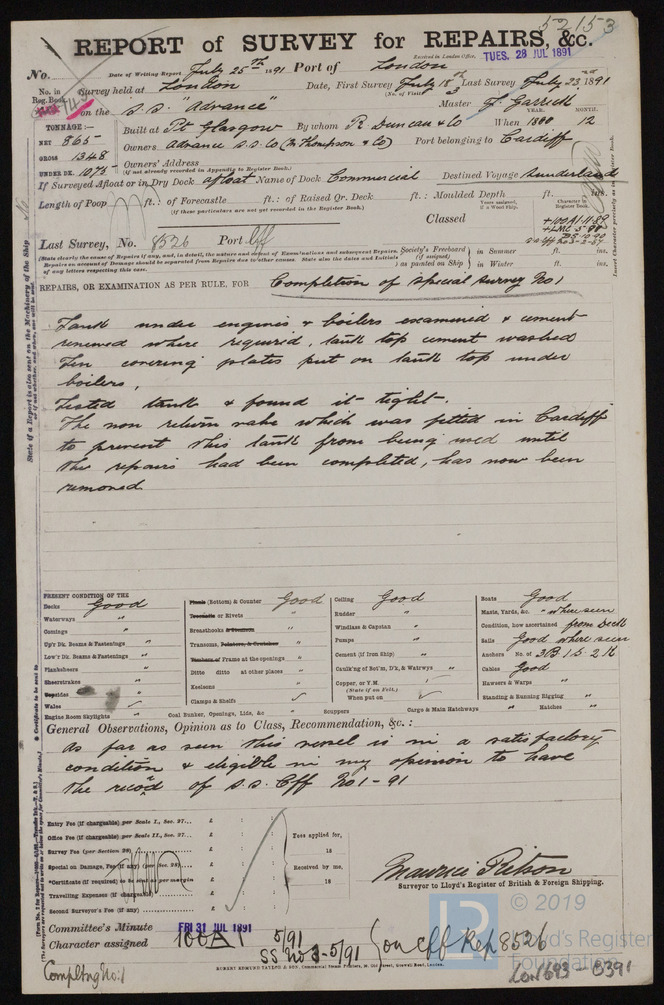 52153
REPORT of SURVEY for REPAIRS, &c.
Received in London Office, TUES. 28 JUL 1891
No. Date of Writing Report July 25th 1891 Port of London
No. in Reg. Book. Survey held at London Date, First Survey July 18th Last Survey July 23rd 1891
(No. of Visits 3)
on the s.s. "Advance" Master J. Garrick
TONNAGE:— Built at Pt Glasgow By whom R. Duncan & Co When 1880 MONTH. 12
NET 865 Owners Advance S.S. Co (M. Thompson & Co) Port belonging to Cardiff
GROSS 1348 Owners' Address
UNDER DK. 1075 (If not already recorded in Appendix to Register Book.)
If Surveyed Afloat or in Dry Dock afloat Name of Dock Commercial Destined Voyage Sunderland
Length of Poop ft.: of Forecastle ft.: of Raised Qr. Deck ft.: Moulded Depth ft. ins.
(If these particulars are not yet recorded in the Register Book.)
Classed
Last Survey, No. 8526 Port Cff
(State clearly the cause of Repairs if any, and, in detail, the nature and extent of Examinations and subsequent Repairs. Society's Freeboard in Summer ft. ins.
Repairs on account of Damage should be separated from Repairs due to other causes. State also the dates and Initials of any letters respecting this case. as painted on Ship in Winter ft. ins.
REPAIRS, OR EXAMINATION AS PER RULE, FOR Completion of Special Survey No 1
Tank under engines & boilers examined & cement
renewed where required, tank top cement washed
Ten covering plates put on tank top under
boilers,
Tested tank & found it tight.
The non return valve which was fitted in Cardiff
to prevent this tank from being used until
the repairs had been completed, has now been
removed
PRESENT CONDITION OF THE
Decks Good
Waterways "
Comings "
Up'r Dk. Beams & Fastenings "
Low'r Dk. Beams & Fastenings "
Planksheers "
Sheerstrakes "
Topsides "
Wales
Engine Room Skylights "
Planks (Bottom) & Counter Good
Treenails or Rivets "
Breasthooks & Crutches "
Transoms, Pointers, & Crutches "
Timbers of Frame at the openings "
Ditto ditto at other places "
Keelsons "
Clamps & Shelfs
Coal Bunker, Openings, Lids, &c "
Ceiling Good
Rudder "
Windlass & Capstan "
Pumps "
Cement (if Iron Ship) "
Caulk'ng of Bot'm, D'k, & Watrwys "
Copper, or Y.M.
(State if on Felt.)
When put on
Scuppers "
Cargo & Main Hatchways "
Boats Good
Masts, Yards, &c. " where seen
Condition, how ascertained from Deck
Sails Good where seen
Anchors No. of 3B 1S 2K
Cables Good
Hawsers & Warps "
Standing & Running Rigging "
Hatches "
General Observations, Opinion as to Class, Recommendation, &c.:
As far as seen this vessel is in a satisfactory
condition & eligible in my opinion to have
the record of s.s. Cff No 1-91
Entry Fee (if chargeable) per Scale I., Sec. 27... £ : :
Office Fee (if chargeable) per Scale II., Sec. 27... £ : :
Survey Fee (per Section 28) £ : :
Special on Damage, Fee (if any) (per Sec. 28) £ : :
*Certificate (if required) to be sent as per margin
Travelling Expenses (if chargeable) £ : :
Second Surveyor's Fee (if any) £ : :
Fees applied for,
18
Received by me,
18
Maurice Pitson
Surveyor to Lloyd's Register of British & Foreign Shipping.
Committee's Minute FRI 31 JUL 1891
Character assigned 100A1 5/91
SS No 3-5/91
Compltng No:1
ROBERT EDMUND TAYLOR & SON, Commercial Steam Printers, 19, Old Street, Goswell Road, London.
© 2019
Lloyd's Register
Foundation
Lon 693-0391